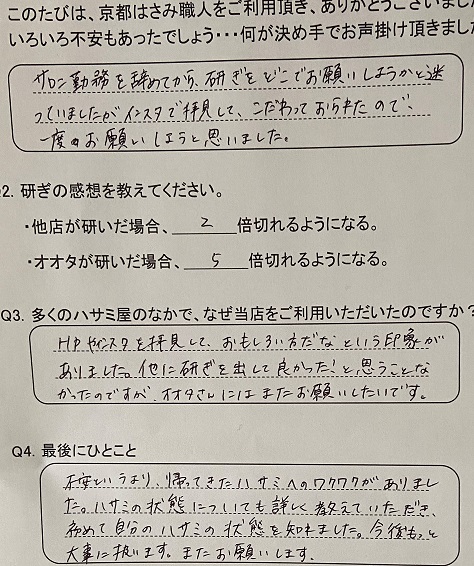 このたびは、京都はさみ職人をご利用頂き、ありがとうございまし
いろいろ不安もあったでしょう・・・何が決め手でお声掛け頂きまし
サロン勤務を辞めてから、研ぎをどこでお願いしようかと迷
っていましたがインスタで拝見して、こだわっておられたので、
一度お願いしようと思いました。
2. 研ぎの感想を教えてください。
・他店が研いだ場合、 2 倍切れるようになる。
・オオタが研いだ場合、 5 倍切れるようになる。
Q3. 多くのハサミ屋のなかで、なぜ当店をご利用いただいたのですか?
HPやインスタを拝見して、おもしろい方だなという印象が
ありました。他に研ぎを出して良かった!と思うことな
かったのですが、オオタさんにはまたお願いしたいです。
Q4. 最後にひとこと
不安というより、帰ってきたハサミへのワクワクがありまし
た。ハサミの状態についても詳しく教えていただき、
初めて自分のハサミの状態を知れました。今後もっと
大事に扱います。またお願いします。